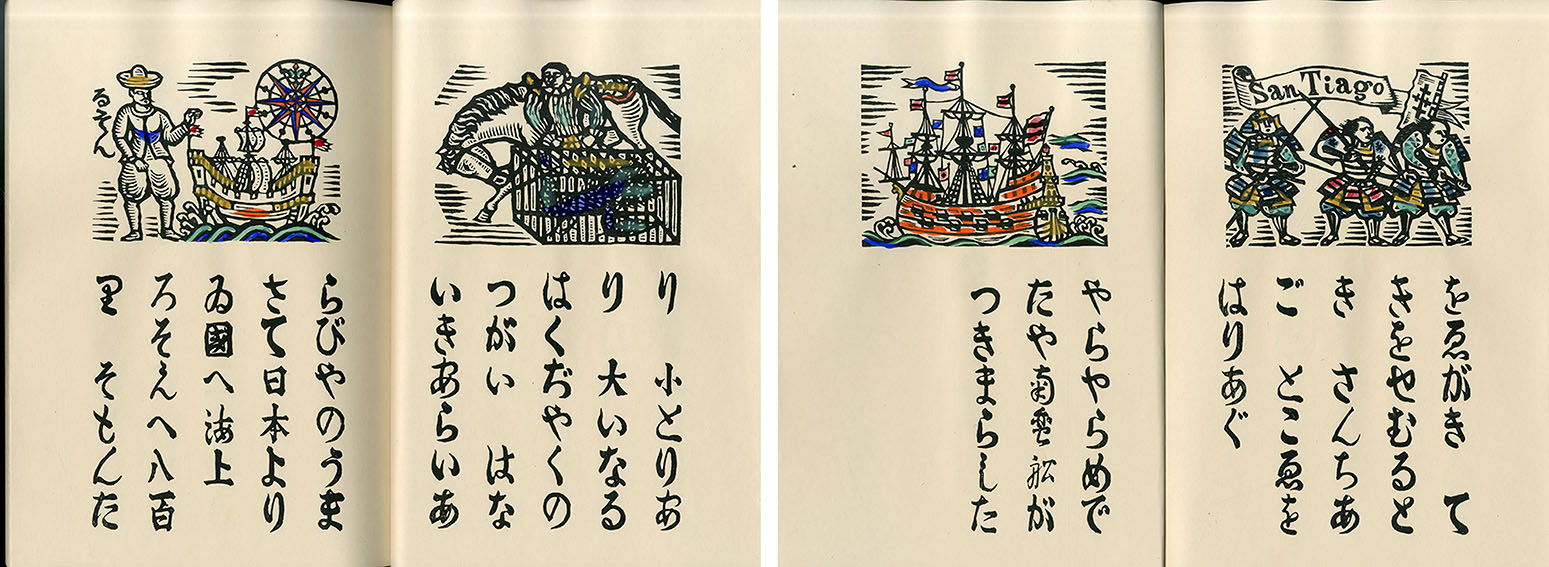 り 小とりあ
り 大いなる
はくだやくの
つがい はな
いきあらいあ
るそん
らびやのうま
さて日本より
ゐ國へ海上
ろそんへ八百
里 そもんた
San Tiago
をゑがき て
きをせむると
き さんちあ
ご とこゑを
はりあぐ
やらやらめで
たや南蛮舩が
つきまらした